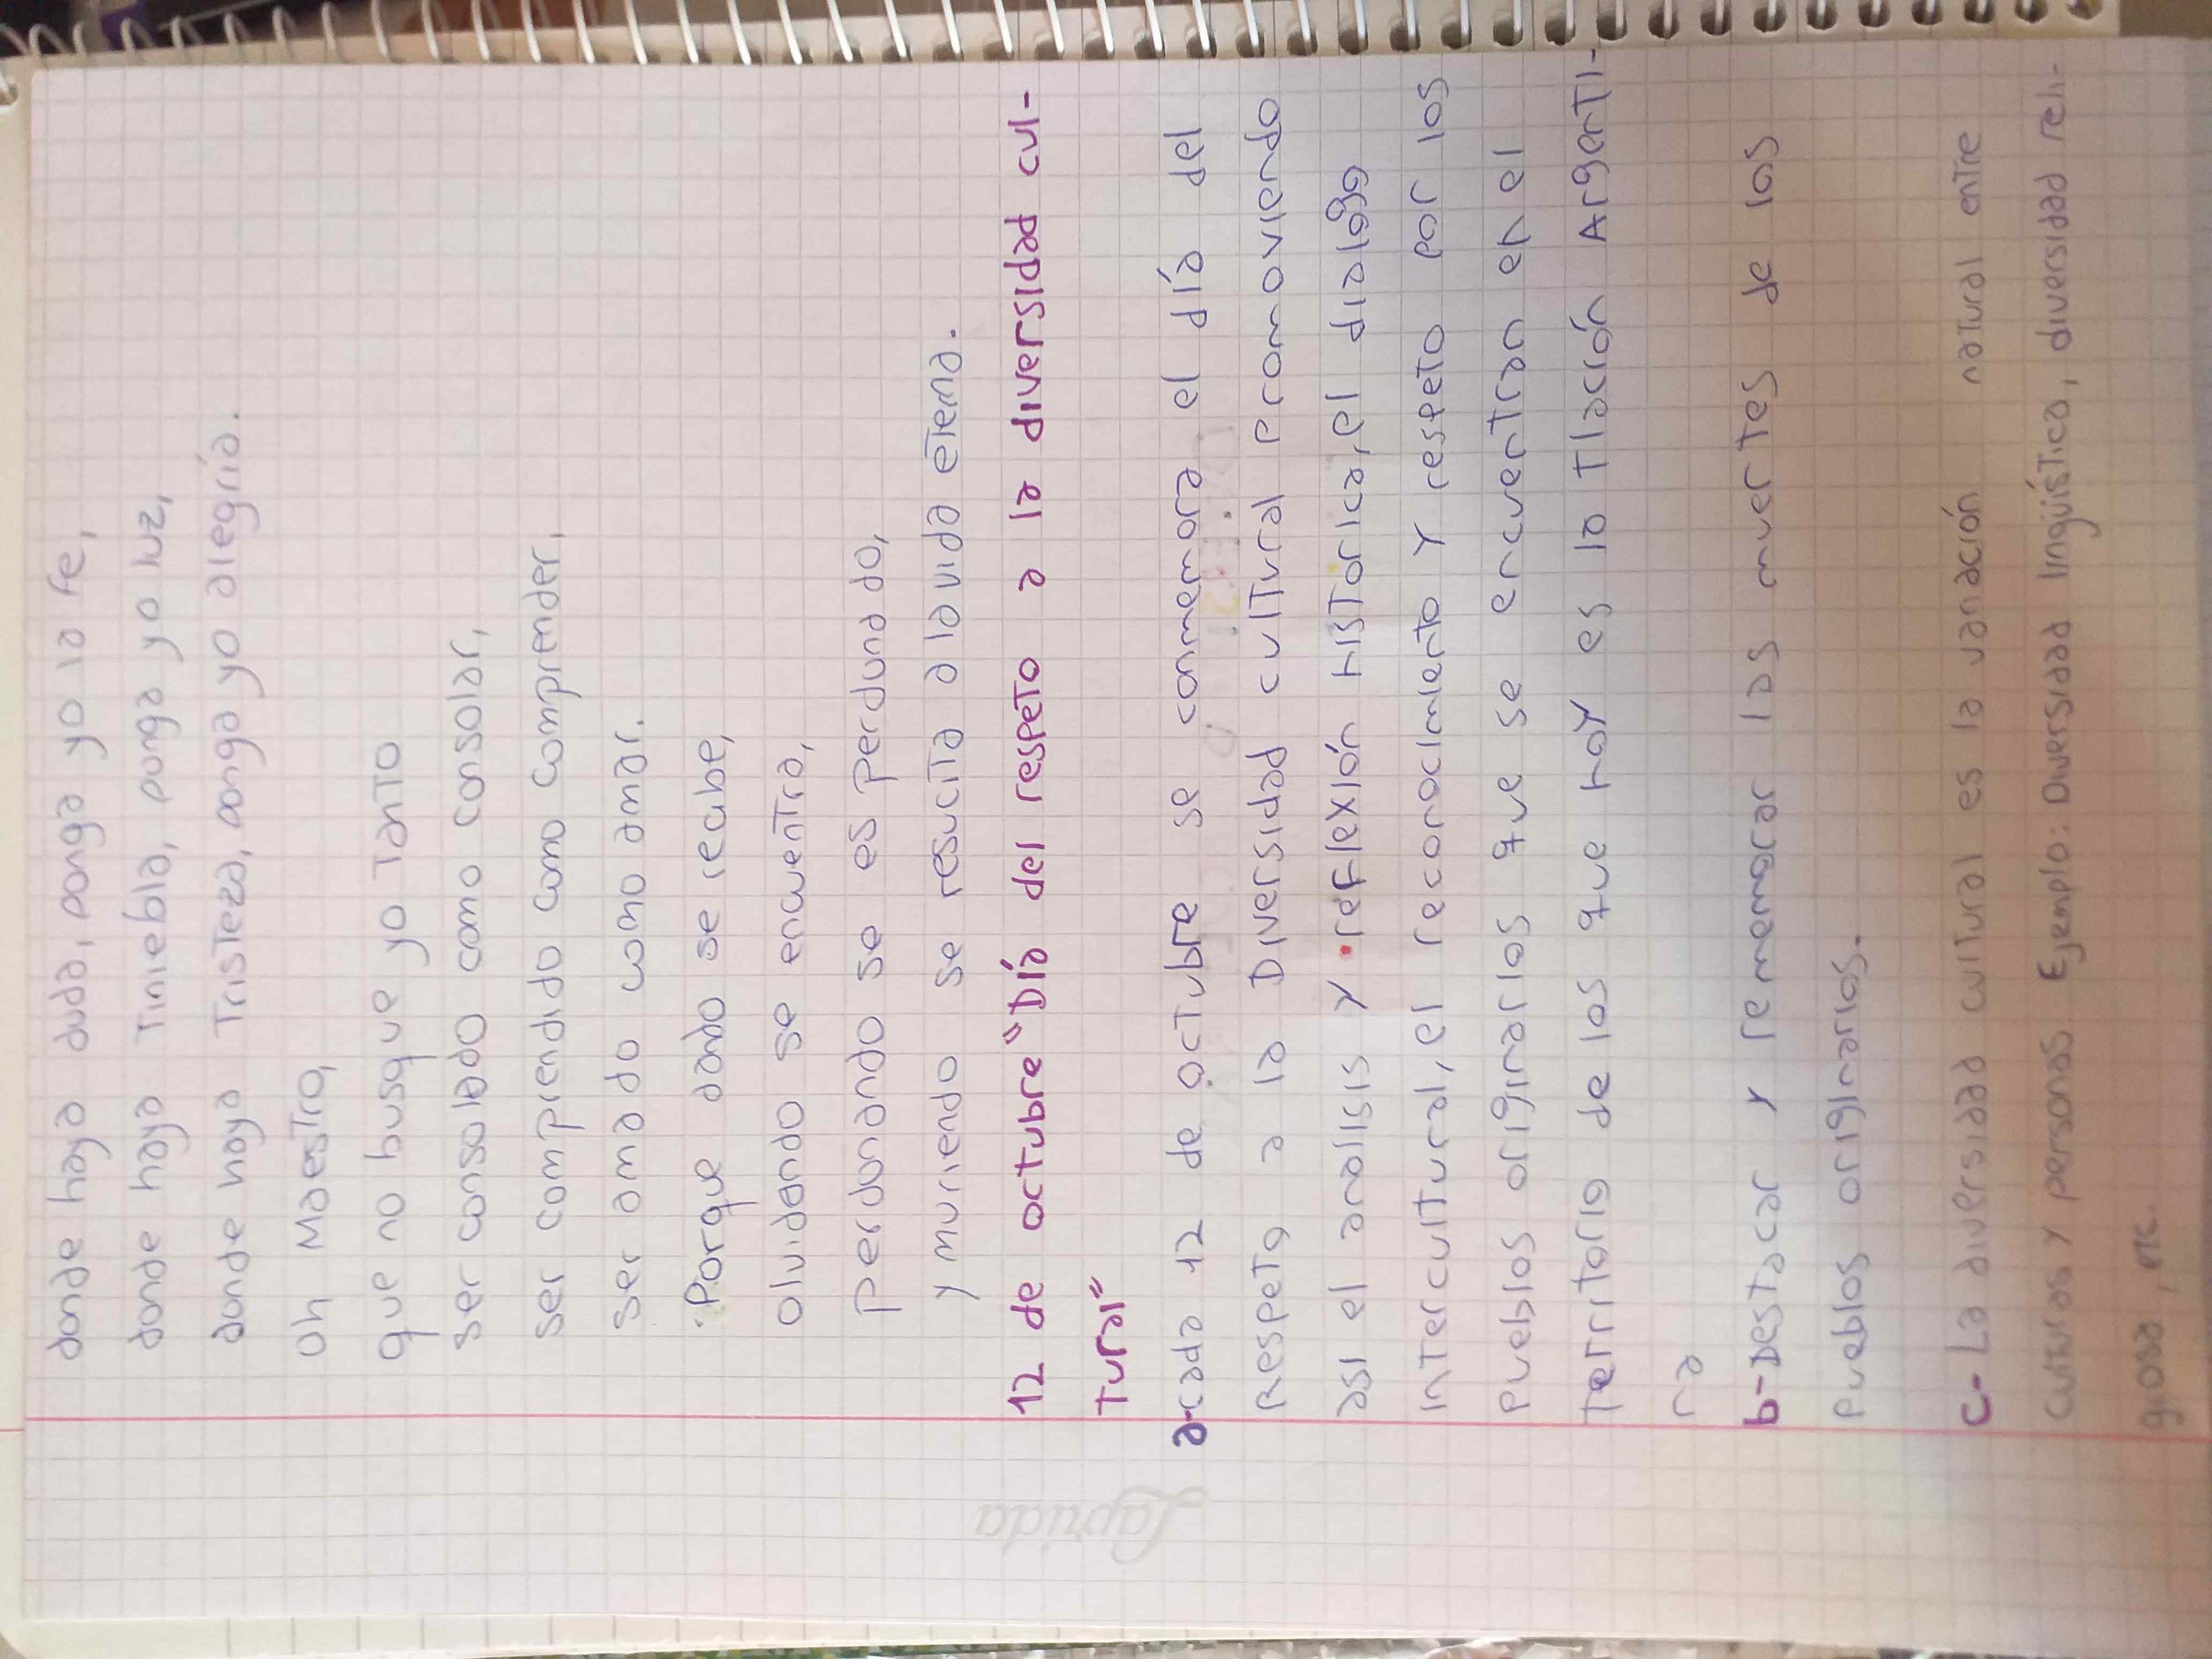 donde haya duda, ponga yo la fe,
donde haya Tiniebla, punga yo luz,
donde haya Tristeza, ponga yo alegría.
Oh Maestro,
que no busque yo Tanto
ser consolado como consolar,
ser comprendido como comprender,
ser amado como amar.
Porque dando se recibe,
olvidando se encuentra,
perdonando se es perdunado,
y muriendo se resucita a la vida eterna.
12 de octubre "Día del respeto a la diversidad cul-
Tural"
a-cada 12 de octubre se conmemora el día del
Respeto a la Diversidad cultural Promoviendo
asi el analisis y reflexión Historica, el dialogo
intercultural, el reconocimiento y respeto por los
Pueblos originarios que se encuentran en el
Territorio de los que hoy es la Nación Argenti-
na
b-Destacar y rememorar las muertes de los
Pueblos originarios.
c-La diversidad cultural es la variación natural entre
culturas y personas. Ejemplo: Diversidad lingüística, diversidad reli-
giosa, etc.
Laprida